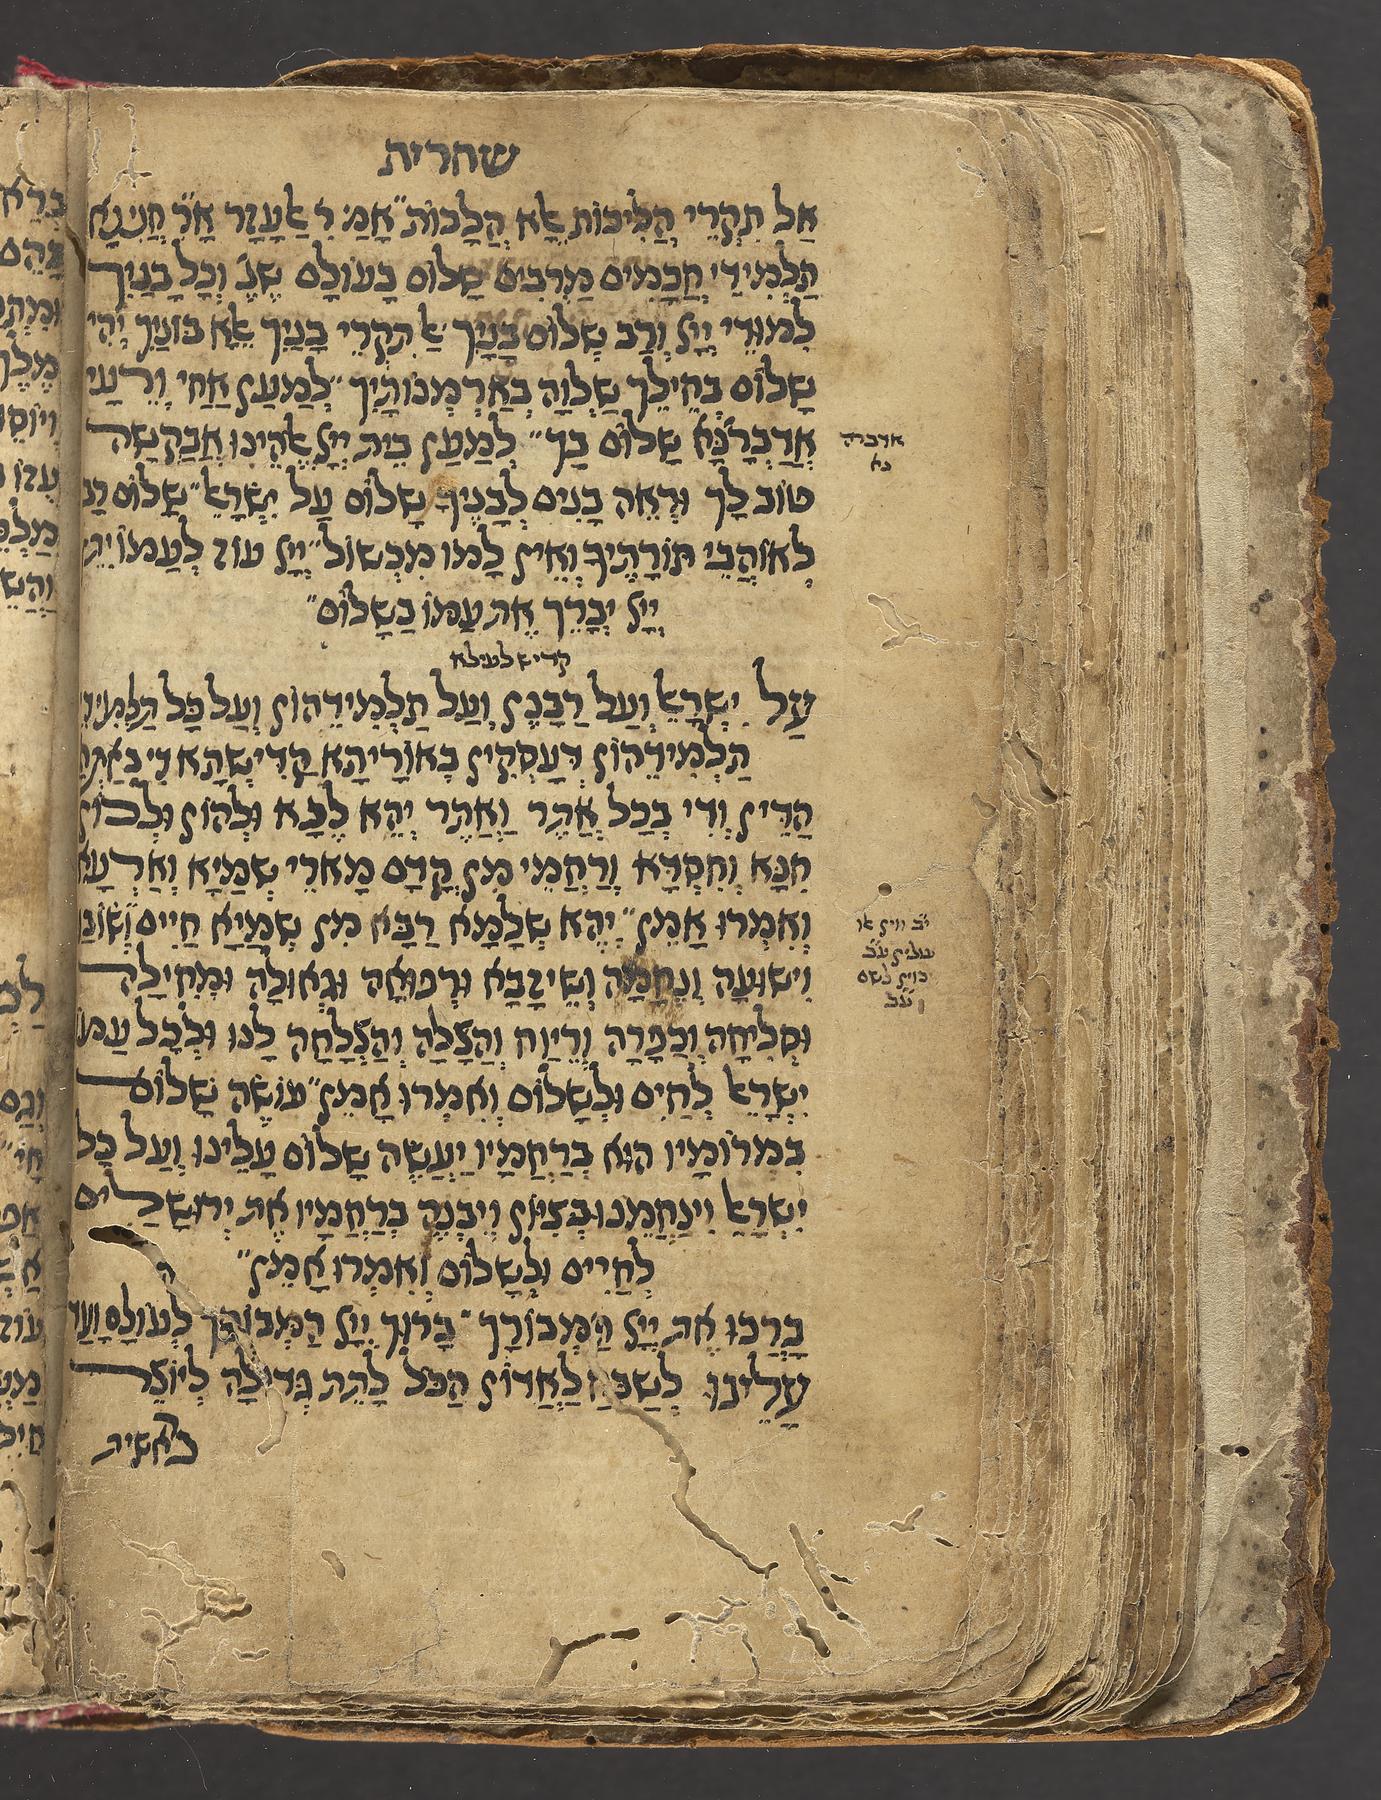 שחרית
אַל תִקְרֵי הֲלִיכוֹת אֶלָא הֲלָכוֹת״ אָמַ׳ ר׳ אֶלְעָזָר אָ״ר חֲנִינָא
תַלְמִידֵי חֲכָמִים מַרְבִים שָׁלוֹם בָעוֹלָם שֶׁנֶ׳ וְכָל בָּנַיִךְ
לִמּוּדֵי יְיָ וְרַב שְׁלוֹם בָּנָיִךְ אַל תִקְרֵי בָּנַיִךְ אֶלָא בּוֹנַיִךְ יְהִי
שָׁלוֹם בְּחֵילֵךְ שַׁלְוָה בְּאַרְמְנוֹתָיִךְ״ לְמַעַן אַחַי וְרֵעָי
אֲדַבְּרָ׳ נָּא שָׁלוֹם בָּךְ״ לְמַעַן בֵּית יְיָ אֱלֹהֵינוּ אֲבַקְשָׁה
טוֹב לָךְ וּרְאֵה בָנִים לְבָנֶיךָ שָׁלוֹם עַל יִשְׂרָאֵל״ שָׁלוֹם רָב
לְאוֹהֲבֵי תוֹרָתֶיךָ וְאֵין לָמוֹ מִכְשׁוֹל״ יְיָ עוֹז לְעַמּוֹ יִתֵּן
יְיָ יְבָרֵךְ אֶת עַמּוֹ בַשָּׁלוֹם״
קדיש לעילא
עַל יִשְׂרָאֵל וְעַל רַבָּנָן וְעַל תַלְמִידֵהוֹן וְעַל כָּל תַלְמִידֵי
תַלְמִידֵהוֹן דְעָסְקִין בְּאוֹרָיְתָא קַדִישְׁתָא דִי בְאַתְרָא
הָדֵין וְדִי בְכָל אֲתַר וַאֲתַר יְהֵא לָנָא וּלְהוֹן וּלְכוֹן
חִנָּא וְחִסְדָא וְרַחֲמֵי מִן קֳדָם מָארֵי שְׁמַיָא וְאַרְעָא
וְאִמְרוּ אָמֵן״ יְהֵא שְׁלָמָא רַבָּא מִן שְׁמַיָא חַיִים וְשׂוֹבַע
וִישׁוּעָה וְנֶחָמָה וְשֵׁיזָבָא וּרְפוּאָה וּגְאוּלָה וּמְחִילָה
וּסְלִיחָה וְכַפָּרָה וְרֵיוַח וְהַצָּלָה וְהַצְלָחָה לָנוּ וּלְכָל עַמּוֹ
יִשְׂרָאֵל לְחַיִים וּלְשָׁלוֹם וְאִמְרוּ אָמֵן״ עוֹשֶׂה שָׁלוֹם
בִּמְרוֹמָיו הוּא בְּרַחֲמָיו יַעֲשֶׂה שָׁלוֹם עָלֵינוּ וְעַל כָּל
יִשְׂרָאֵל וִינַחֲמֵנוּ בְצִיּוֹן וְיִבְנֶה בְּרַחֲמָיו אֶת יְרוּשָׁלַיִם
לְחַיִים וּלְשָׁלוֹם וְאִמְרוּ אָמֵן״
בָּרְכוּ אֶת יְיָ הַמְבוֹרָךְ״ בָּרוּךְ יְיָ הַמְבוֹרָךְ לְעוֹלָם וָעֶד
עָלֵינוּ לְשַׁבֵּחַ לַאֲדוֹן הַכֹּל לָתֵת גְּדוּלָה לְיוֹצֵר
בראשית
אדברה
נא
י״ב ווין או